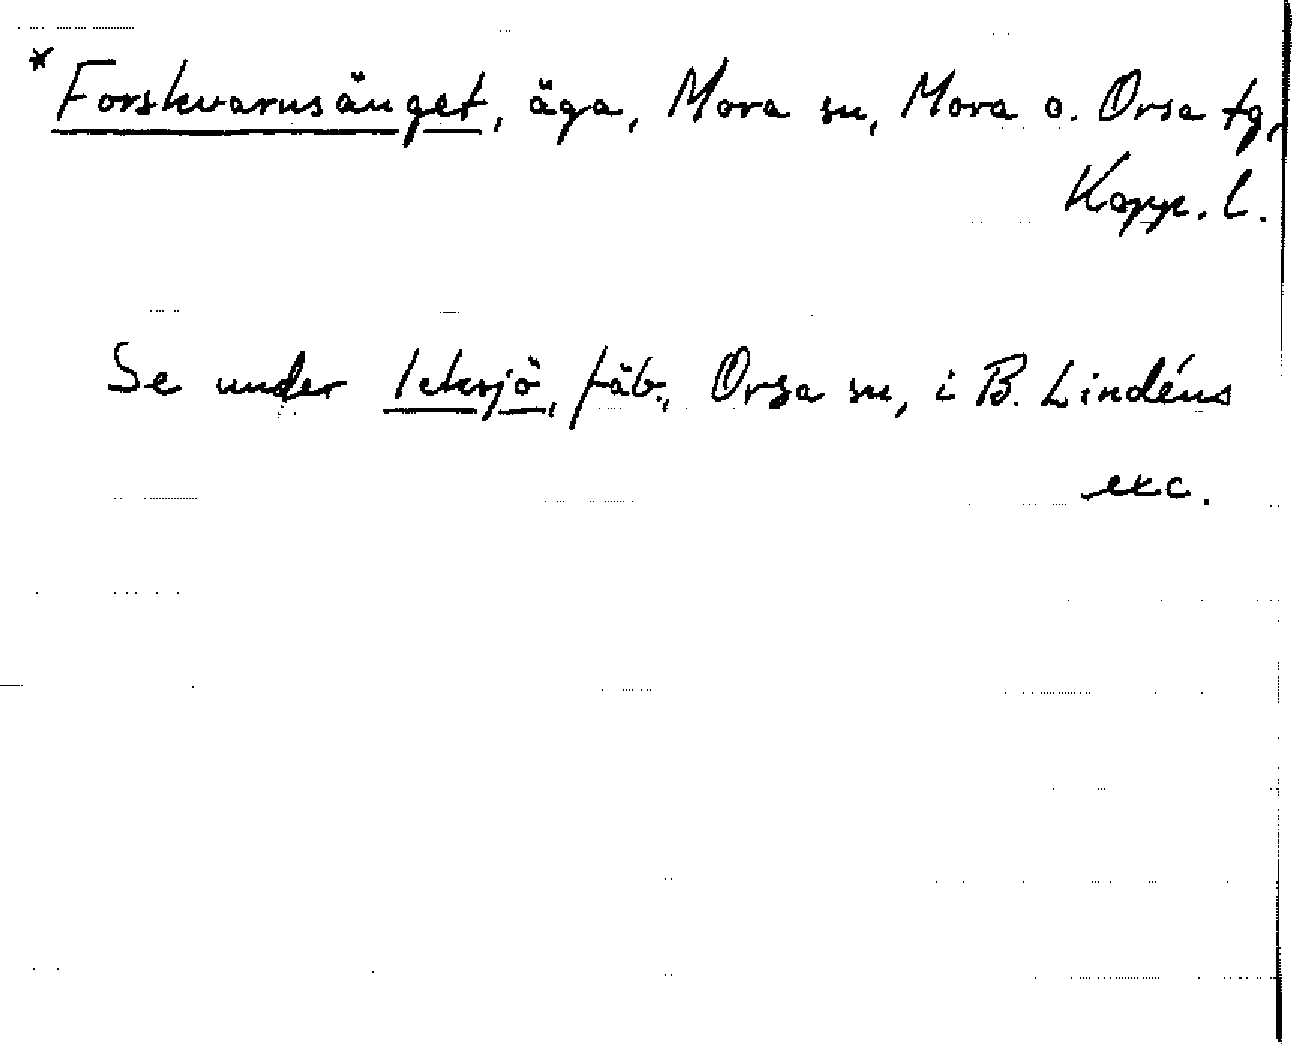 *Forskvarnsänget, äga, Mora sn, Mora o. Orsa tg,
Kopp. l.
Se under Icksjö, fäb., Orsa sn, i B. Lindéns
exc.